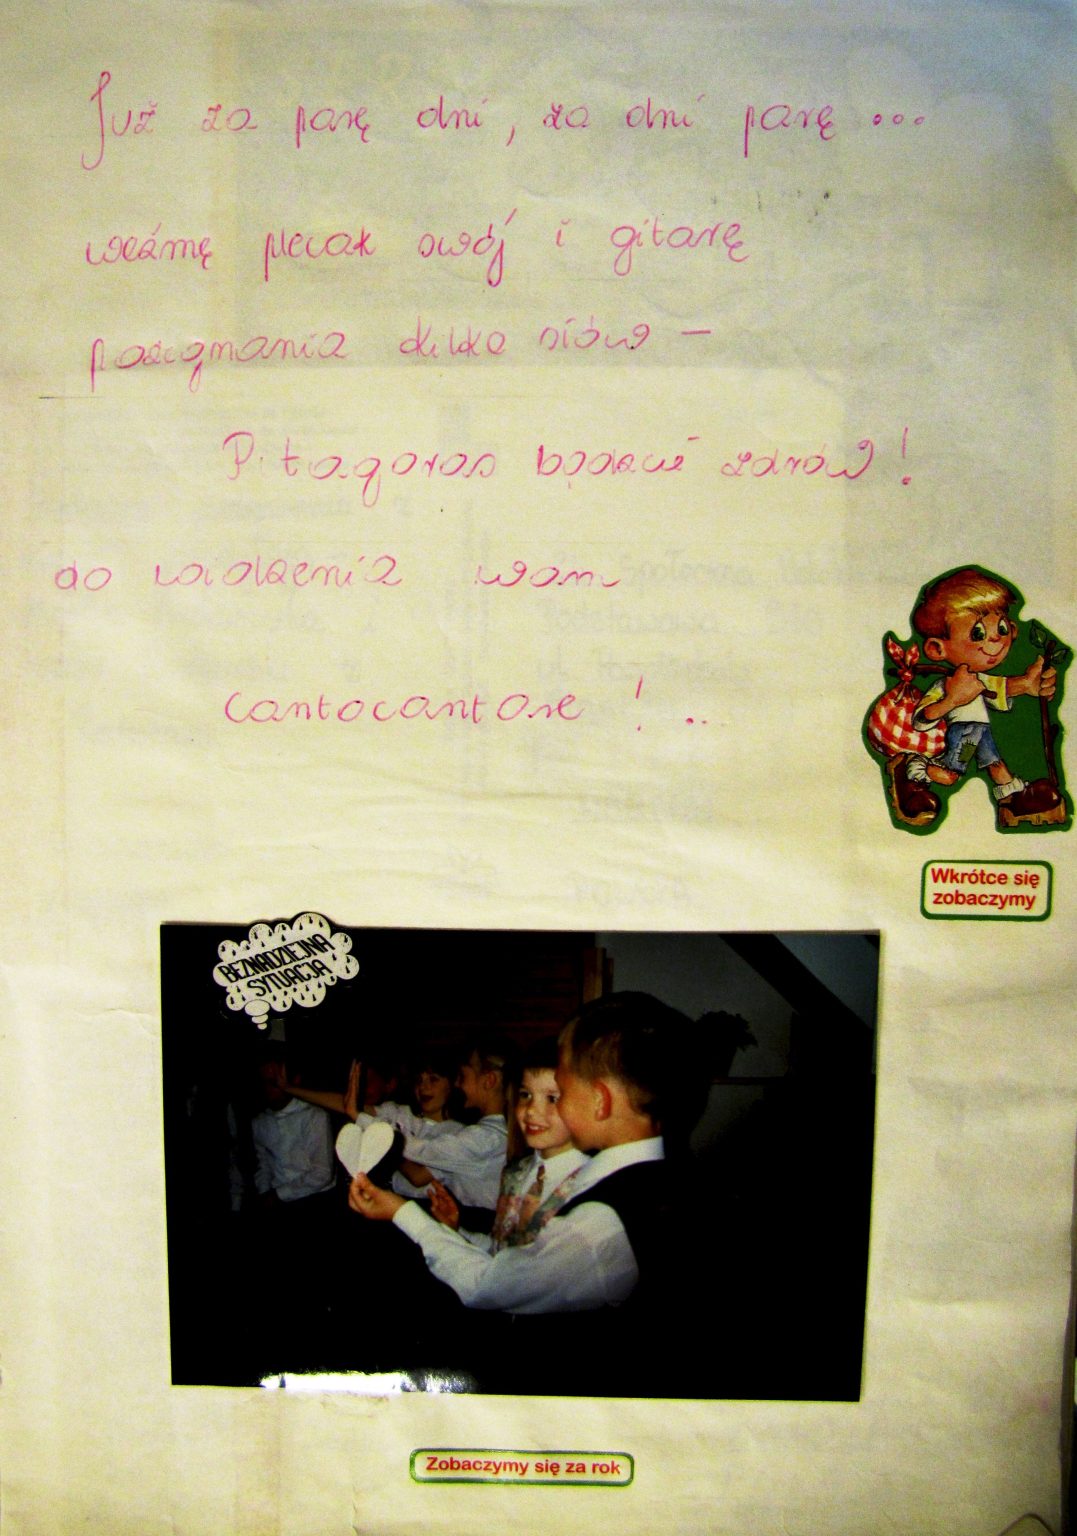 Już za parę dni, za dni parę ...
wezmę plecak swój i gitarę
pożegnania kilka słów -
Pitagoras bądźcie zdrów!
do widzenia wam
cantocantare! ..
Wkrótce się
zobaczymy
BEZNADZIEJNA
SYTUACJA
Zobaczymy się za rok